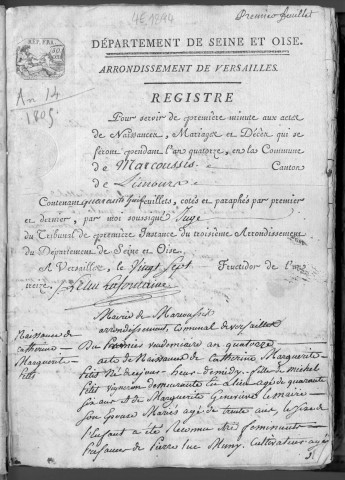 4E 1294
Premier feuillet
RÉP. FRA.
DÉPARTEMENT DE SEINE ET OISE.
ARRONDISSEMENT DE VERSAILLES.
An 14
1805
REGISTRE
Pour servir de première minute aux actes
de Naissances, Mariages et Décès qui se
feront pendant l'an quatorze, en la Commune
de Marcoussis Canton
de Limours
Contenant quarante huit feuillets, cotés et paraphés par premier
et dernier, par moi soussigné Juge
du Tribunal de première Instance du troisième Arrondissement
du Département de Seine et Oise.
A Versailles, le Vingt Sept Fructidor de l'an
treize.
Mairie de Marcoussis
arrondissement communal de versailles
Naissance de
catherine
Marguerite
Du premier vendemiaire an quatorze
acte de Naissance de Catherine Marguerite
née de ce jour heur de midy fille de michel
vigneron demeurante en ce lieu agé de quarante
six ans et de Marguerite Genevieve Lemaire
son Epouse Mariés agé de trente ans le sexe de
l'Enfant a été reconnu être feminin
présence de Pierre Luc Muny Cultivateur agé